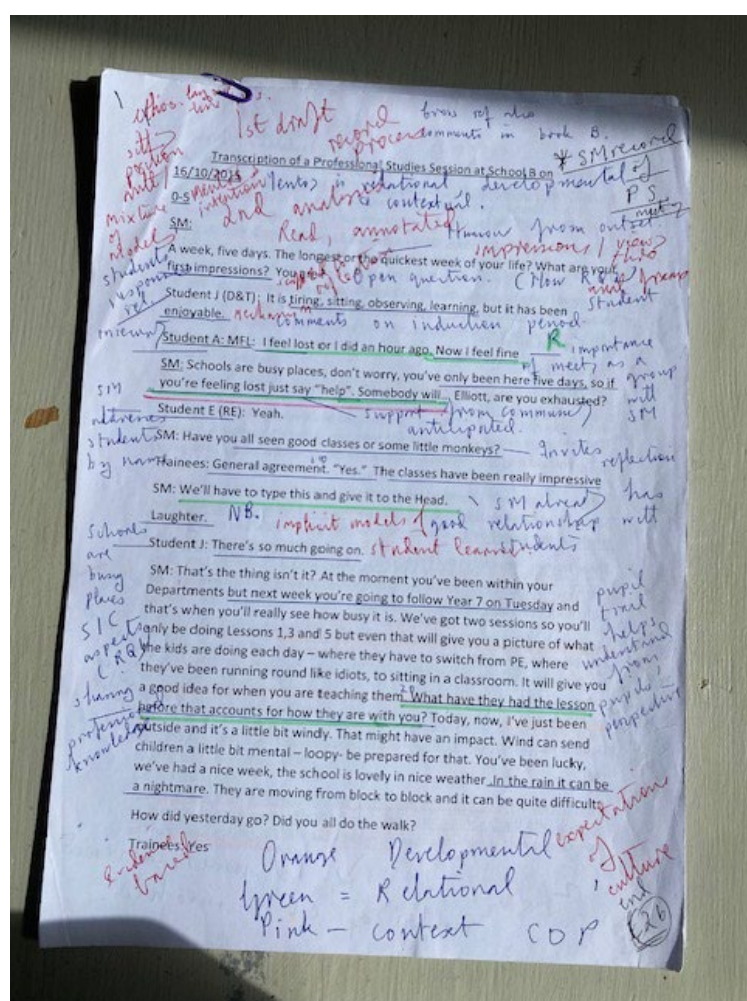 1st draft
record
process
brows ref also
comments in book B.
Transcription of a Professional Studies Session at School B on
* SM record
of
PS
meeting
16/10/2015
is relational developmental
& contextual.
0-5
2nd analysis
Read, annotated
Humour from outset.
SM:
impressions / views
A week, five days. The longest or the quickest week of your life? What are your
first impressions? You
Open question. (How
Student J (D&T): It is tiring, sitting, observing, learning, but it has been
enjoyable.
comments on induction period.
student
Student A: MFL: I feel lost or I did an hour ago. Now I feel fine
R
importance
of meets as a
group
with
SM
SM: Schools are busy places, don't worry, you've only been here five days, so if
you're feeling lost just say "help". Somebody will. Elliott, are you exhausted?
SM
addresses
students
by name
Student E (RE): Yeah.
support from community
anticipated.
SM: Have you all seen good classes or some little monkeys?
Invites
reflection
Trainees: General agreement. "Yes." The classes have been really impressive
SM: We'll have to type this and give it to the Head.
SM already has
Laughter.
NB. implicit models of good relationship with
students
Student J: There's so much going on.
student learns
Schools
are
busy
places
SM: That's the thing isn't it? At the moment you've been within your
Departments but next week you're going to follow Year 7 on Tuesday and
that's when you'll really see how busy it is. We've got two sessions so you'll
only be doing Lessons 1,3 and 5 but even that will give you a picture of what
the kids are doing each day – where they have to switch from PE, where
they've been running round like idiots, to sitting in a classroom. It will give you
a good idea for when you are teaching them. What have they had the lesson
before that accounts for how they are with you? Today, now, I've just been
outside and it's a little bit windy. That might have an impact. Wind can send
children a little bit mental – loopy- be prepared for that. You've been lucky,
we've had a nice week, the school is lovely in nice weather .In the rain it can be
a nightmare. They are moving from block to block and it can be quite difficult.
SIC
aspects
(RQ)
sharing
professional
knowledge
pupil
trail
helps
understand
from
pupils'
perspective
How did yesterday go? Did you all do the walk?
Trainees: Yes
Evidence
based
expectation
of
culture
Orange Developmental
Green = Relational
Pink – context COP
26